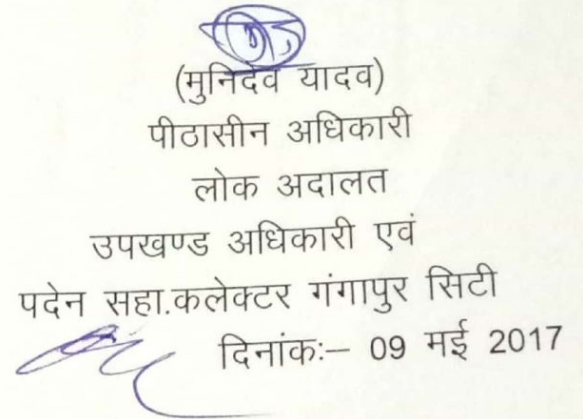 (मुनिदेव यादव)
पीठासीन अधिकारी
लोक अदालत
उपखण्ड अधिकारी एवं
पदेन सहा.कलेक्टर गंगापुर सिटी
दिनांकः– 09 मई 2017